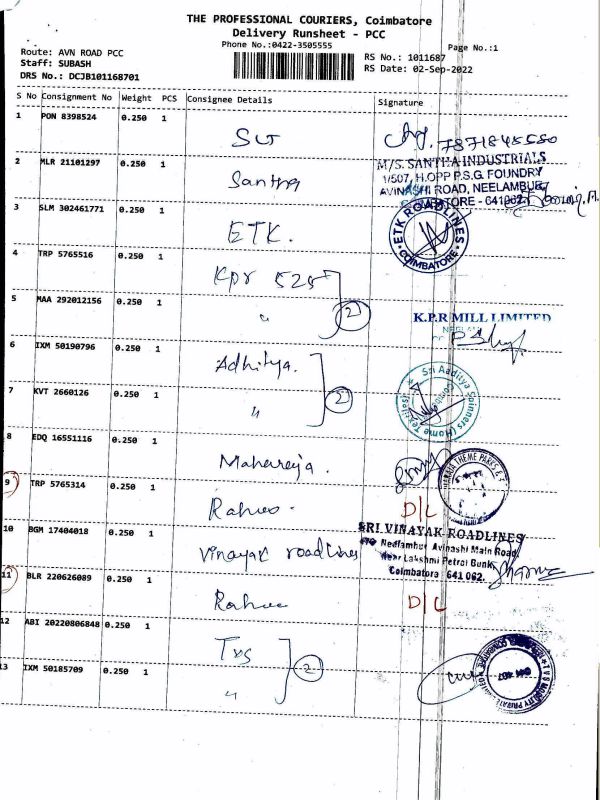 THE PROFESSIONAL COURIERS, Coimbatore
Delivery Runsheet - PCC
Phone No.:0422-3505555
Page No.:1
Route: AVN ROAD PCC
Staff: SUBASH
DRS No.: DCJB101168701
RS No.: 1011687
RS Date: 02-Sep-2022
S No Consignment No Weight PCS Consignee Details Signature
1 PON 8398524 0.250 1
7871845550
2 MLR 21101297 0.250 1 Santha
M/S. SANTHA INDUSTRIALS
1/507, H.OPP P.S.G. FOUNDRY
AVINASHI ROAD, NEELAMBUR
COIMBATORE - 641062
3 SLM 302461771 0.250 1 ETK.
ETK ROADLINES
COIMBATORE
4 TRP 5765516 0.250 1 Kpr 525
2
5 MAA 292012156 0.250 1 "
K.P.R MILL LIMITED
6 IXM 50190796 0.250 1 Adhitya.
2
7 KVT 2660126 0.250 1 "
Sri Aaditya Spinners (Home Textiles)
8 EDQ 16551116 0.250 1 Maharaja.
THEME PARKS
9 TRP 5765314 0.250 1
D/L
10 BGM 17404018 0.250 1 Vinayak roadlines
SRI VINAYAK ROADLINES
Neelambur Avinashi Main Road
Near Lakshmi Petrol Bunk
Coimbatore 641 062.
11 BLR 220626089 0.250 1
D/L
12 ABI 20220806848 0.250 1 Tvs
2
13 IXM 50185709 0.250 1 "